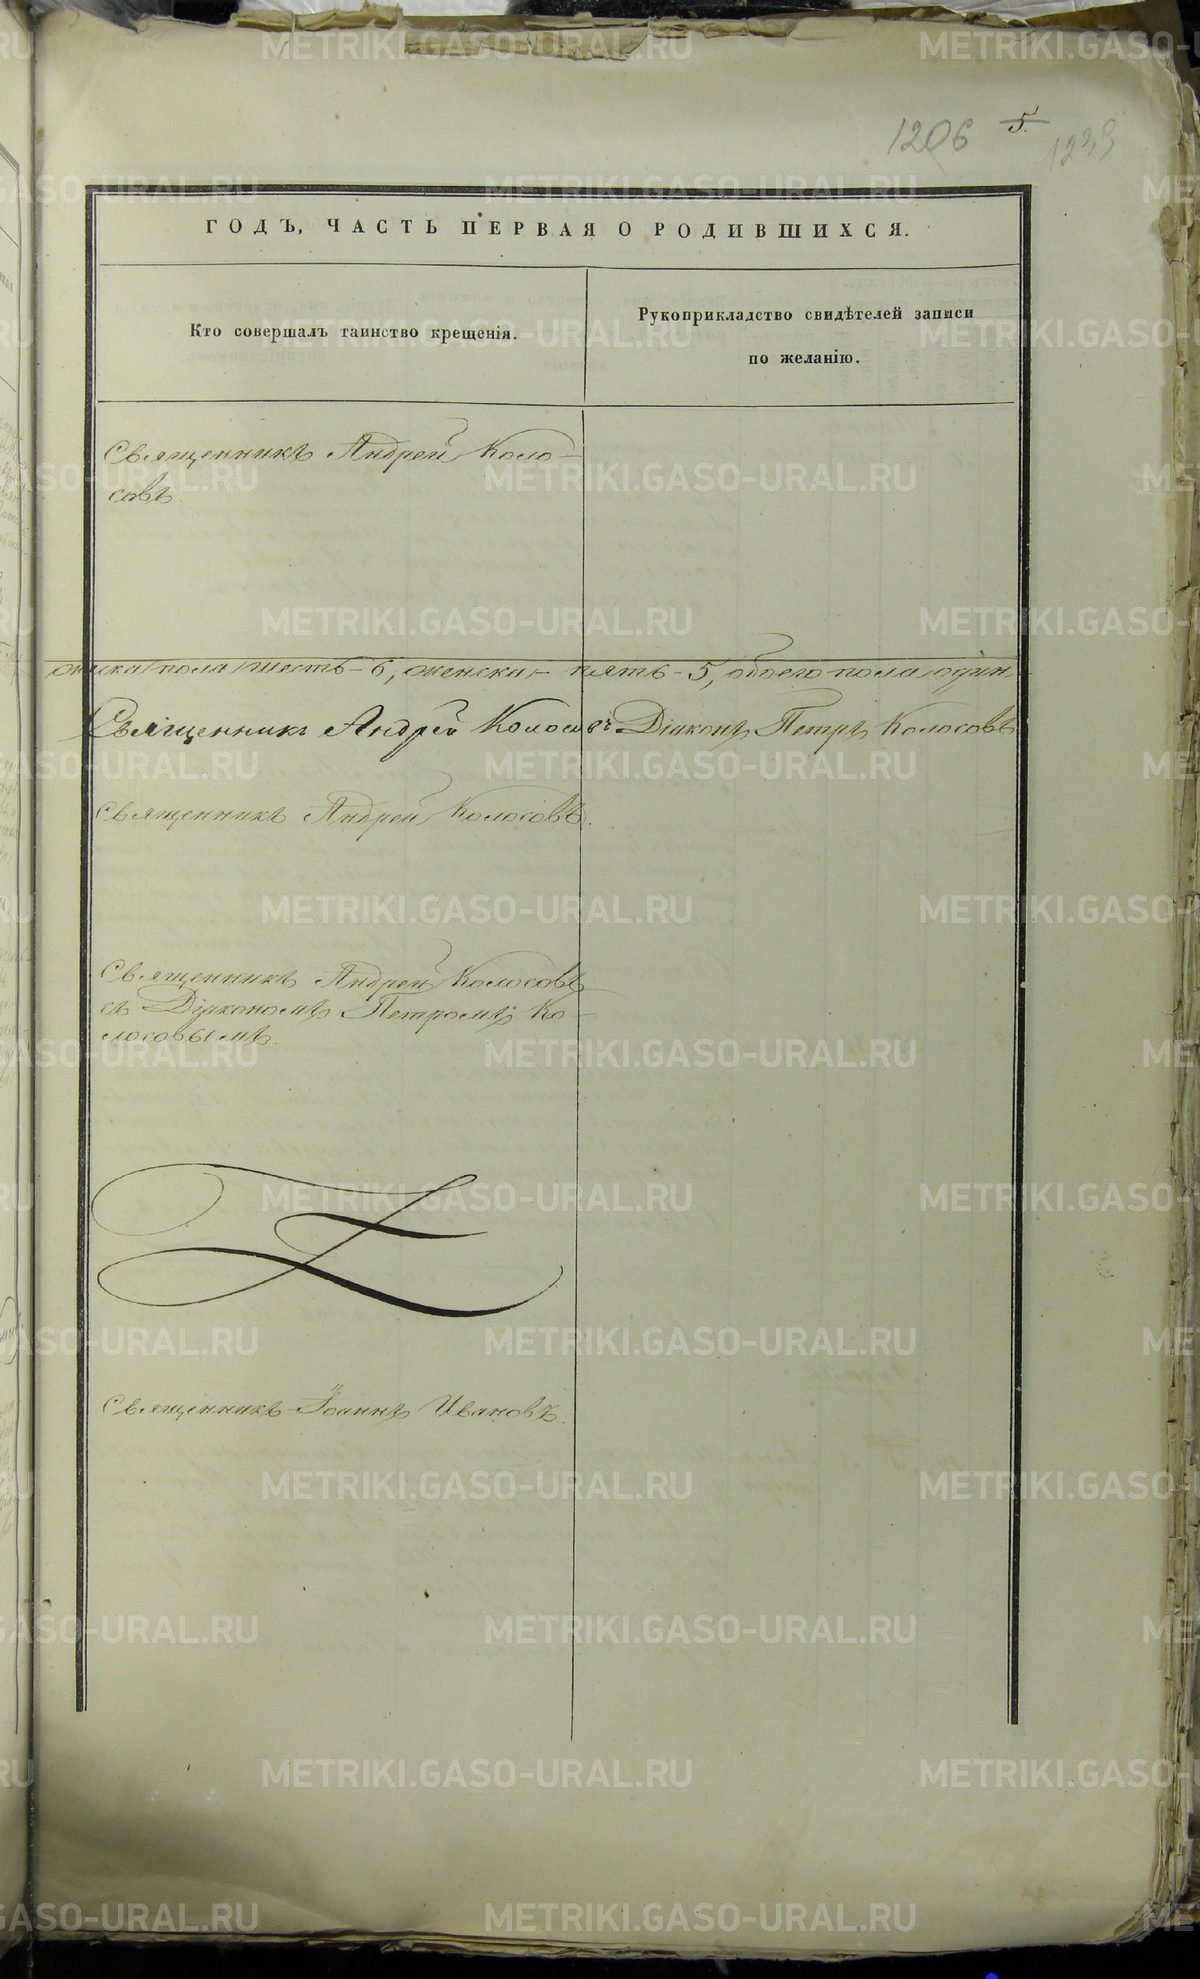 1206 5. 1233
ГОДЪ, ЧАСТЬ ПЕРВАЯ О РОДИВШИХСЯ.
Кто совершалъ таинство крещенія.
Рукоприкладство свидѣтелей записи
по желанію.
Священникъ Андрей Коло-
совъ
пола шесть - 6, женска - пять - 5, обоего пола один
Священникъ Андрей Колосовъ Діаконъ Петръ Колосовъ
Священникъ Андрей Колосовъ.
Священникъ Андрей Колосовъ
съ Діакономъ Петромъ Ко-
лосовымъ.
Священникъ Іоаннъ Ивановъ.
METRIKI.GASO-URAL.RU